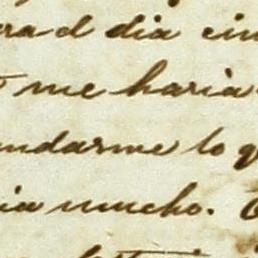 ra el dia cin
me haria
ndarme lo q
ia mucho.